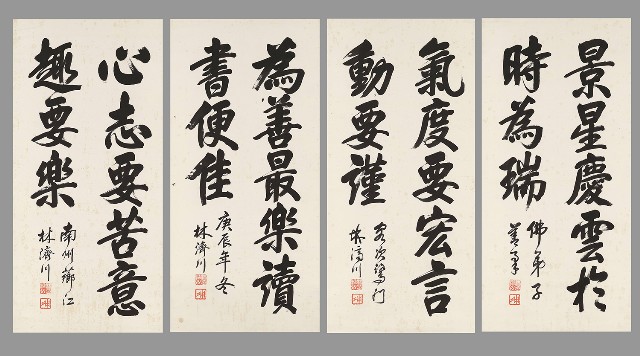 景星慶雲於
時為瑞
佛弟子
氣度要宏言
動要謹
客次鷺門
林濟川
為善最樂讀
書便佳
庚辰年冬
林濟川
心志要苦意
趣要樂
南州薌江
林濟川